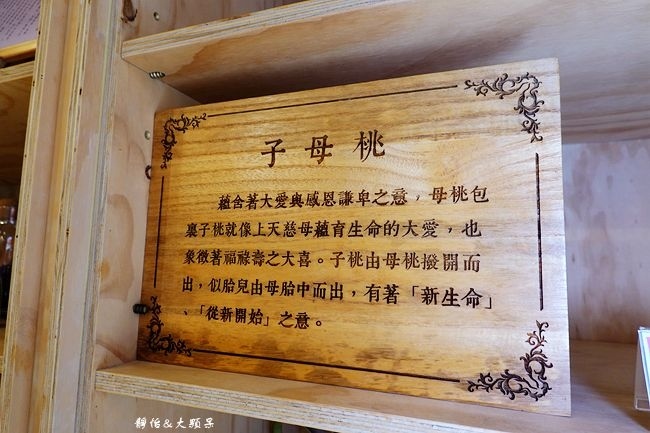 子母桃
蘊含著大愛與感恩謙卑之意，母桃包
裹子桃就像上天慈母蘊育生命的大愛，也
象徵著福祿壽之大喜。子桃由母桃撥開而
出，似胎兒由母胎中而出，有著「新生命」
、「從新開始」之意。
靜怡&大顆呆